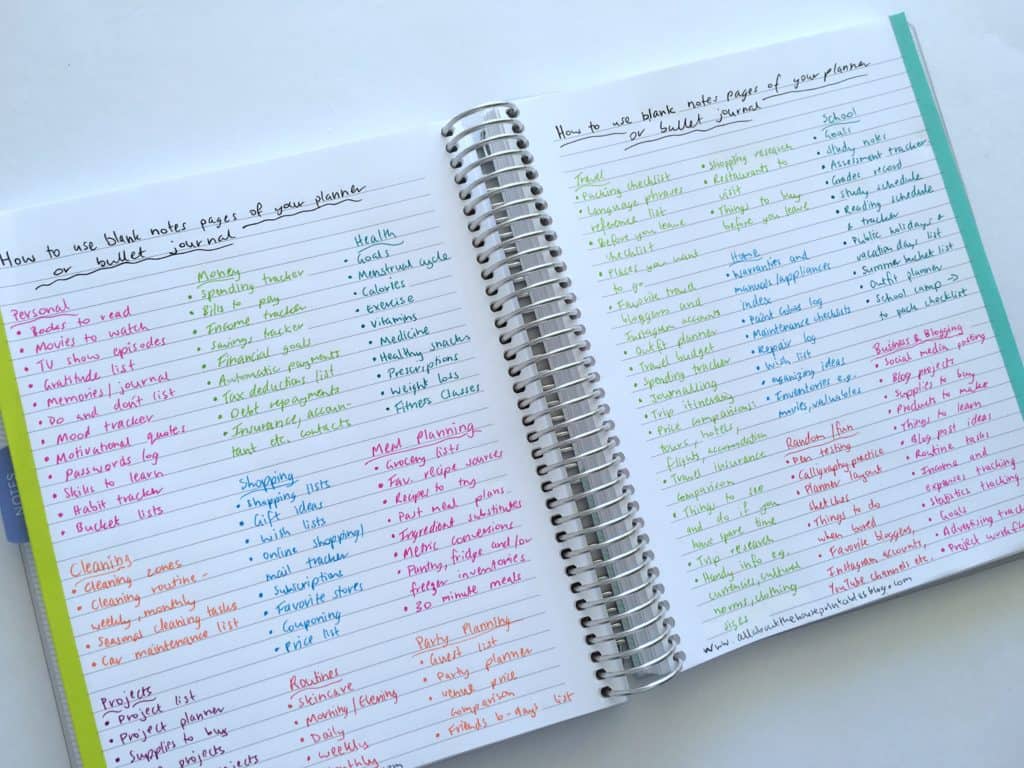 How to use blank notes pages of your planner
or bullet journal
Personal
• Books to read
• Movies to watch
• TV show episodes
• Gratitude list
• Memories/journal
• Do and don't list
• Mood tracker
• Motivational quotes
• Passwords log
• Skills to learn
• Habit tracker
• Bucket lists
Cleaning
• Cleaning zones
• Cleaning routine -
weekly, monthly
• Seasonal cleaning tasks
• Car maintenance list
Projects
• Project list
• Project planner
• Supplies to buy
projects
Money
• Spending tracker
• Bills to pay
• Income tracker
• Savings tracker
• Financial goals
• Automatic payments
• Tax deductions list
• Debt repayments
• Insurance, accoun-
tant etc. contacts
Shopping
• Shopping lists
• Gift ideas
• Wish lists
• Online shopping/
mail tracker
• Subscriptions
• Favorite stores
• Couponing
• Price list
Routines
• Skincare
• Morning/Evening
• Daily
• Weekly
Health
• Goals
• Menstrual cycle
• Calories
• Exercise
• Vitamins
• Medicine
• Healthy snacks
• Prescriptions
• Weight loss
• Fitness classes
Meal Planning
• Grocery lists
• Fav. recipe sources
• Recipes to try
• Past meal plans
• Ingredient substitutes
• Metric conversions
• Pantry, fridge and/or
freezer inventories
• 30 minute meals
Party Planning
• Guest list
• Party planner
• Venue price
comparison
• Friends b-days list
NOTES
How to use blank notes pages of your planner
or bullet journal
Travel
• Packing checklist
• Language phrases
reference list
• Before you leave
checklist
• Places you want
to go
• Favorite travel
bloggers and
Instagram accounts
• Outfit planner
• Travel budget
• Spending tracker
• Journalling
• Trip itinerary
• Price comparisons:
tours, hotels,
flights, accomodation
• Travel insurance
comparison
• Things to see
and do if you
have spare time
• Trip research
• Handy info eg.
currencies, cultural
norms, clothing
sizes
• Shopping research
• Restaurants to
visit
• Things to buy
before you leave
Home
• Warranties and
manuals/appliances
index
• Paint colors log
• Maintenance checklists
• Repair log
• Wish list
• Organizing ideas
• Inventories e.g.
movies, valuables
Random/fun
• Pen testing
• Calligraphy practice
• Planner layout
sketches
• Things to do
when bored
• Favorite bloggers,
Instagram accounts,
YouTube channels etc.
School
• Goals
• Study notes
• Assessment tracker
• Grades record
• Study schedule
• Reading schedule
& tracker
• Public holidays &
vacation days list
• Summer bucket list
• Outfit planner
• School camp →
to pack checklist
Business & Blogging
• Social media posting
• Blog projects
• Supplies to buy
• Products to make
• Things to learn
• Blog post ideas
• Routine tasks
• Income and
expenses tracking
• Statistics tracking
• Goals
• Advertising
• Project
www.allaboutthehouseprintablesblog.com